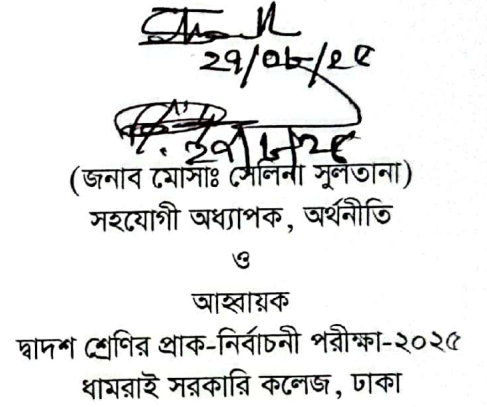 ২৭/০৮/২৫
২৭/৮/২৫
(জনাব মোসাঃ সেলিনা সুলতানা)
সহযোগী অধ্যাপক, অর্থনীতি
ও
আহবায়ক
দ্বাদশ শ্রেণির প্রাক-নির্বাচনী পরীক্ষা-২০২৫
ধামরাই সরকারি কলেজ, ঢাকা